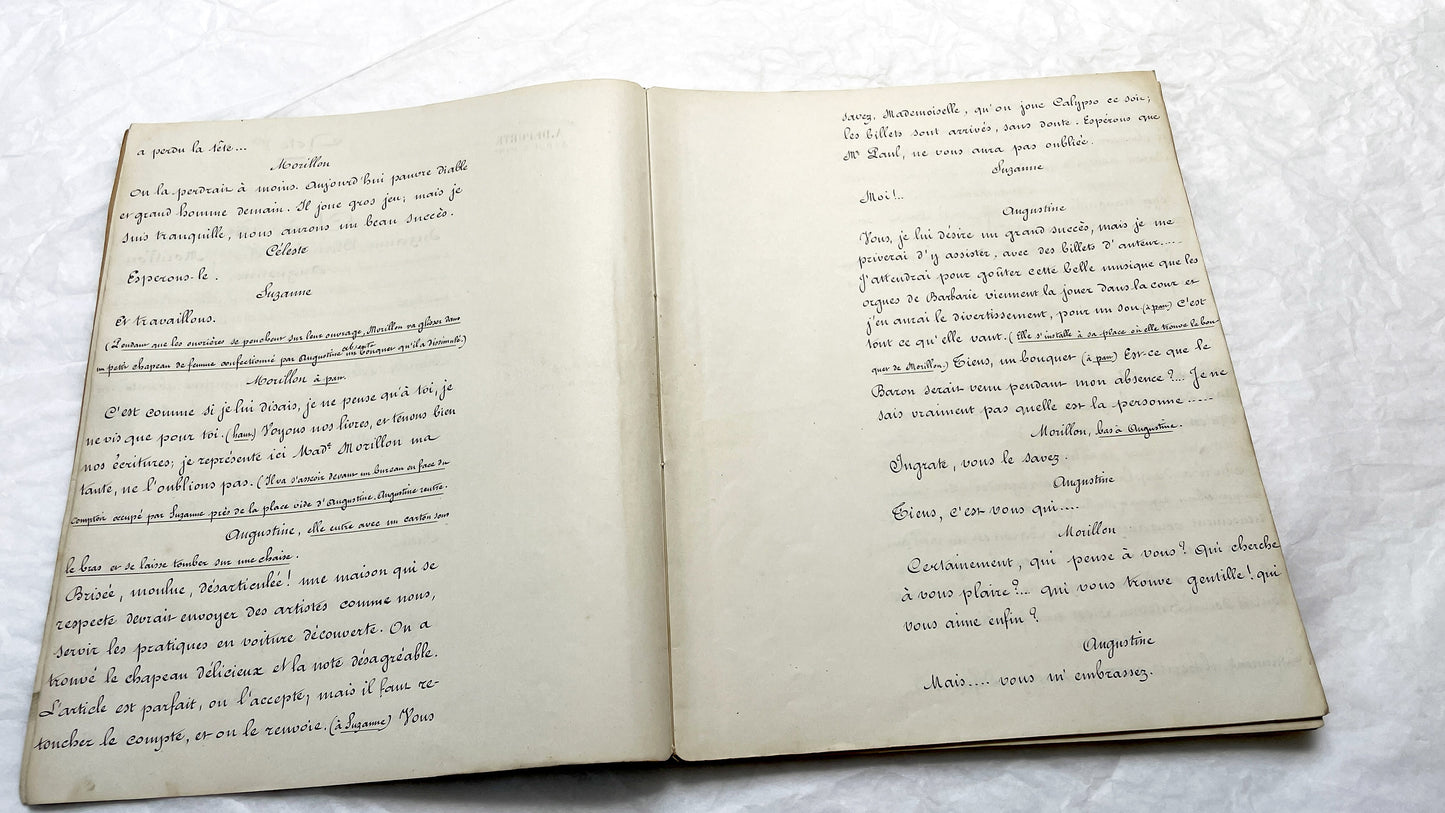 a perdu la tête...
Morillon
On la perdrait à moins. Aujourd'hui pauvre diable
et grand homme demain. Il joue gros jeu; mais je
suis tranquille, nous aurons un beau succès.
Céleste
Esperons-le.
Suzanne
Et travaillons.
(Pendant que les ouvrières se penchent sur leur ouvrage, Morillon va glisser dans
un petit chapeau de femme confectionné par Augustine absente un bouquet qu'il a dissimulé.)
Morillon à part.
C'est comme si je lui disais, je ne pense qu'à toi, je
ne vis que pour toi. (haut) Voyons nos livres, et tenons bien
nos écritures; je représente ici Made Morillon ma
tante, ne l'oublions pas. (Il va s'asseoir devant un bureau en face du
comptoir occupé par Suzanne près de la place vide d'Augustine. Augustine rentre.
Augustine, elle entre avec un carton sous
le bras et se laisse tomber sur une chaise.
Brisée, moulue, désarticulée! une maison qui se
respecte devrait envoyer des artistes comme nous,
servir les pratiques en voiture découverte. On a
trouvé le chapeau délicieux et la note désagréable.
L'article est parfait, on l'accepte, mais il faut re-
toucher le compte, et on le renvoie. (à Suzanne) Vous
savez, Mademoiselle, qu'on joue Calypso ce soir;
les billets sont arrivés, sans doute. Espérons que
Mr Paul, ne vous aura pas oubliée.
Suzanne
Moi!..
Augustine
Vous, je lui désire un grand succès, mais je me
priverai d'y assister, avec des billets d'auteur.....
J'attendrai pour goûter cette belle musique que les
orgues de Barbarie viennent la jouer dans la cour et
j'en aurai le divertissement, pour un sou (à part) C'est
tout ce qu'elle vaut. (Elle s'installe à sa place où elle trouve le bou-
quet de Morillon.) Tiens, un bouquet (à part) Est-ce que le
Baron serait venu pendant mon absence?... Je ne
sais vraiment pas quelle est la personne .....
Morillon, bas à Augustine.
Ingrate, vous le savez.
Augustine
Tiens, c'est vous qui....
Morillon
Certainement, qui pense à vous? Qui cherche
à vous plaire?... qui vous trouve gentille! qui
vous aime enfin?
Augustine
Mais.... vous m'embrassez.